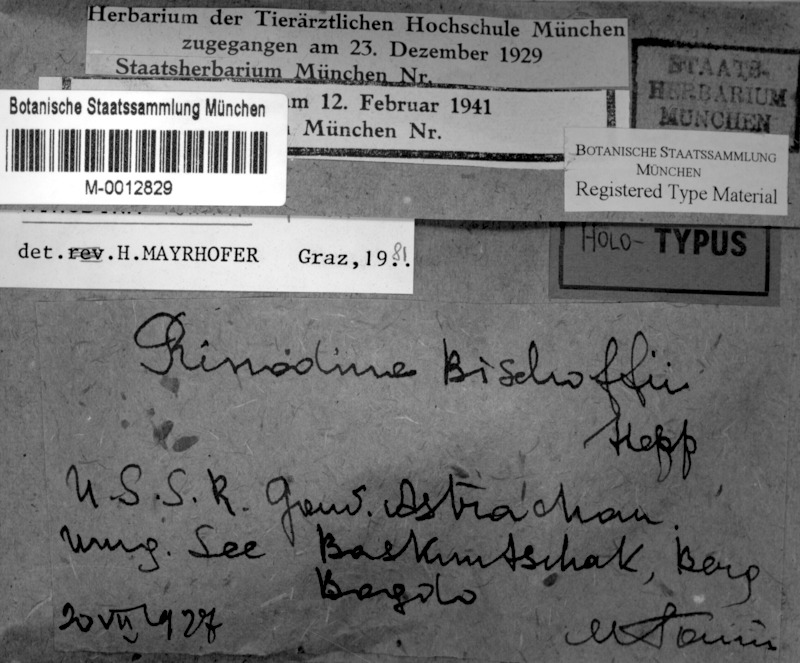 Herbarium der Tierärztlichen Hochschule München
zugegangen am 23. Dezember 1929
Staatsherbarium München Nr.
am 12. Februar 1941
München Nr.
STAATS-
HERBARIUM
MÜNCHEN
Botanische Staatssammlung München
M-0012829
BOTANISCHE STAATSSAMMLUNG
MÜNCHEN
Registered Type Material
det.rev.H.MAYRHOFER Graz,1981
HOLO- TYPUS
Rinodina Bischoffii
Hepp
U.S.S.R. Gouv. Astrachan.
Umg. See Baskuntschak, Berg
Bogdo
20 VII 1927